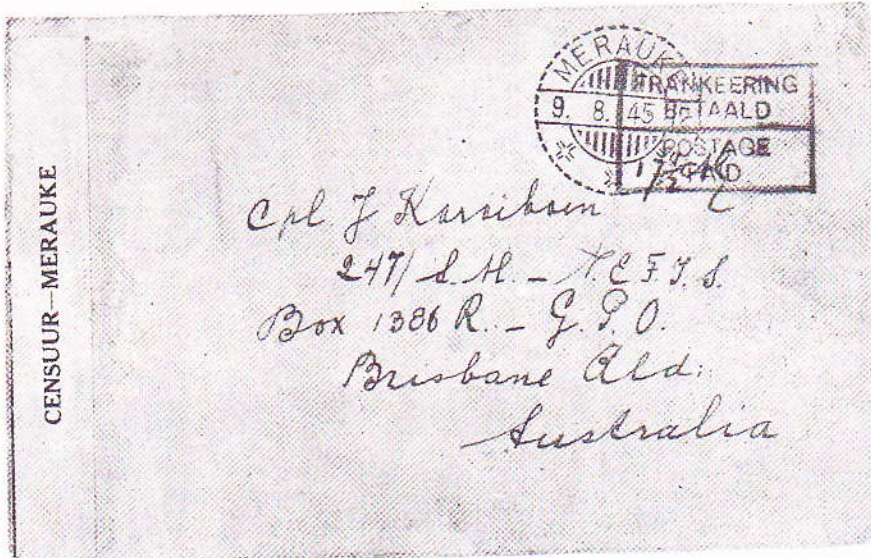 CENSUUR—MERAUKE
MERAUKE
9. 8. 45
FRANKEERING
BETAALD
POSTAGE
PAID
Cpl J
247/ S.M. – N.E.F.I.S.
Box 1386 R. – G.P.O.
Brisbane Qld.
Australia